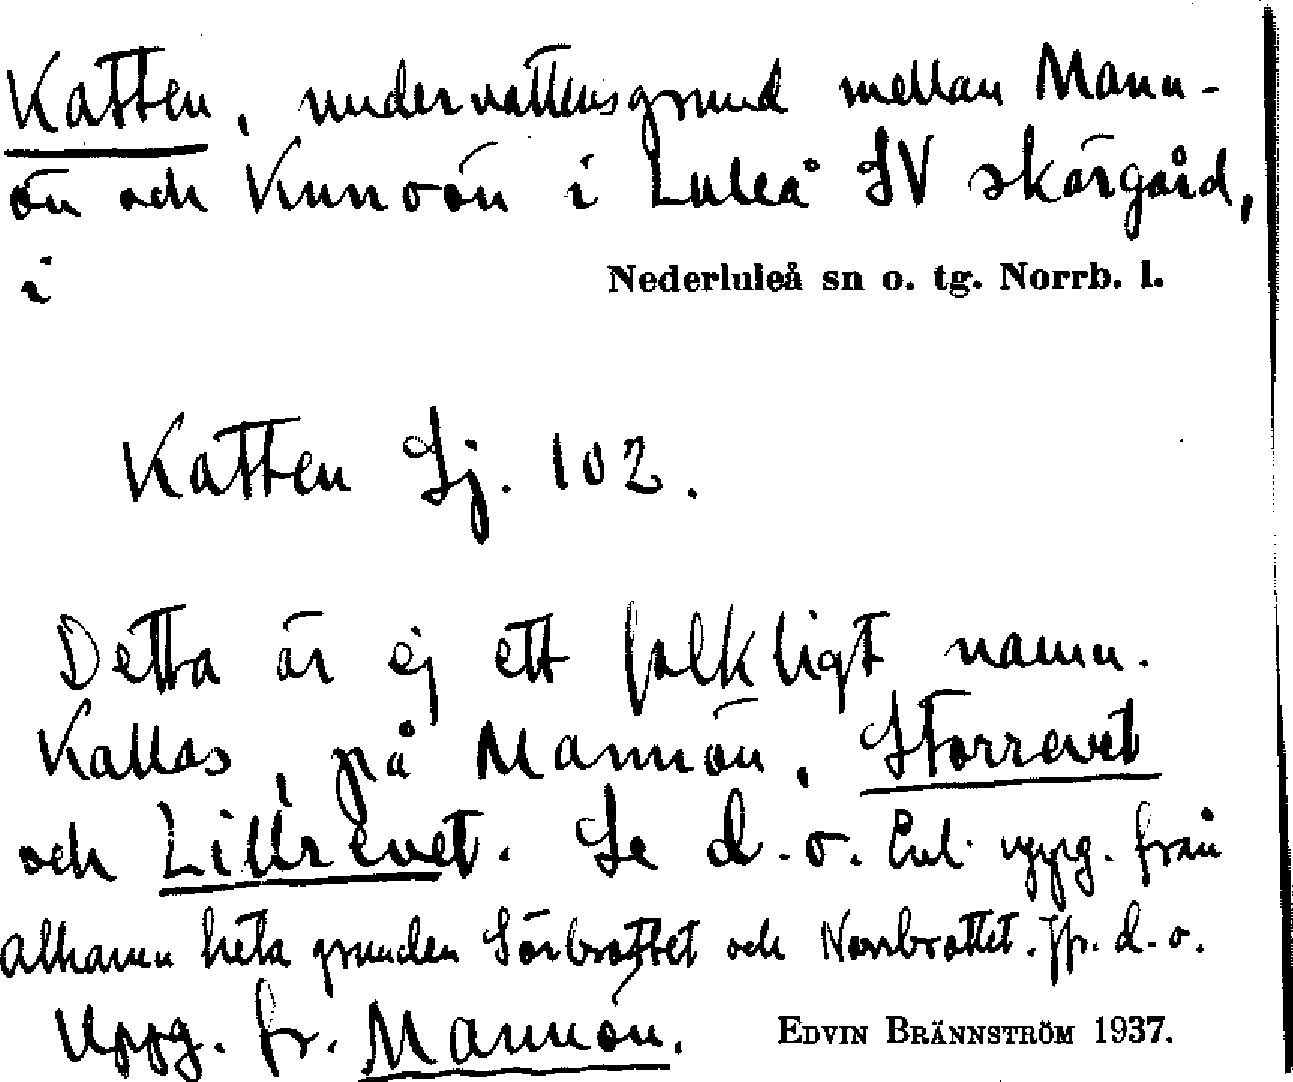 Katten, undervattensgrund mellan Mann-
ön och Kunoön i Luleå SV skärgård,
i Nederluleå sn o. tg. Norrb. l.
Katten Sj. 102.
Detta är ej ett folkligt namn.
Kallas, på Mannön, Storrevet
och Lillrevet. Se d. o. Enl. uppg. från
Alhamn heta grunden Sörbrottet och Norrbrottet. Jfr. d. o.
Uppg. fr. Mannön. EDVIN BRÄNNSTRÖM 1937.